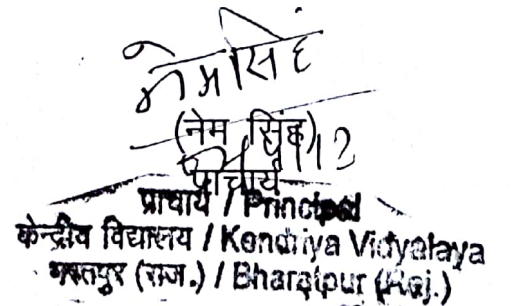 नेमसिंह
(नेम सिंह)
प्राचार्य
प्राचार्य / Principal
केन्द्रीय विद्यालय / Kendriya Vidyalaya
भरतपुर (राज.) / Bharatpur (Raj.)